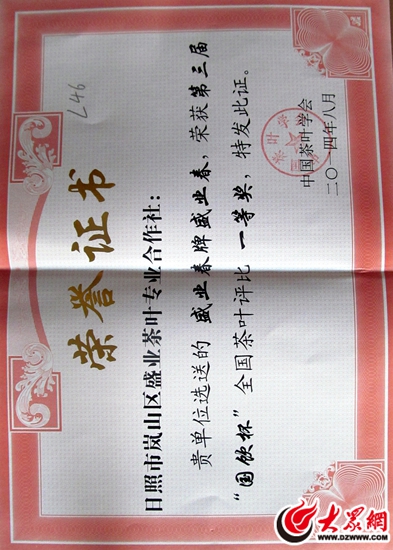 L46
荣誉证书
日照市岚山区盛业茶叶专业合作社：
贵单位选送的 盛业春牌盛业春，荣获第三届
“国饮杯”全国茶叶评比 一等奖，特发此证。
中国茶叶学会
二〇一四年八月
大众網
WWW.DZWWW.COM